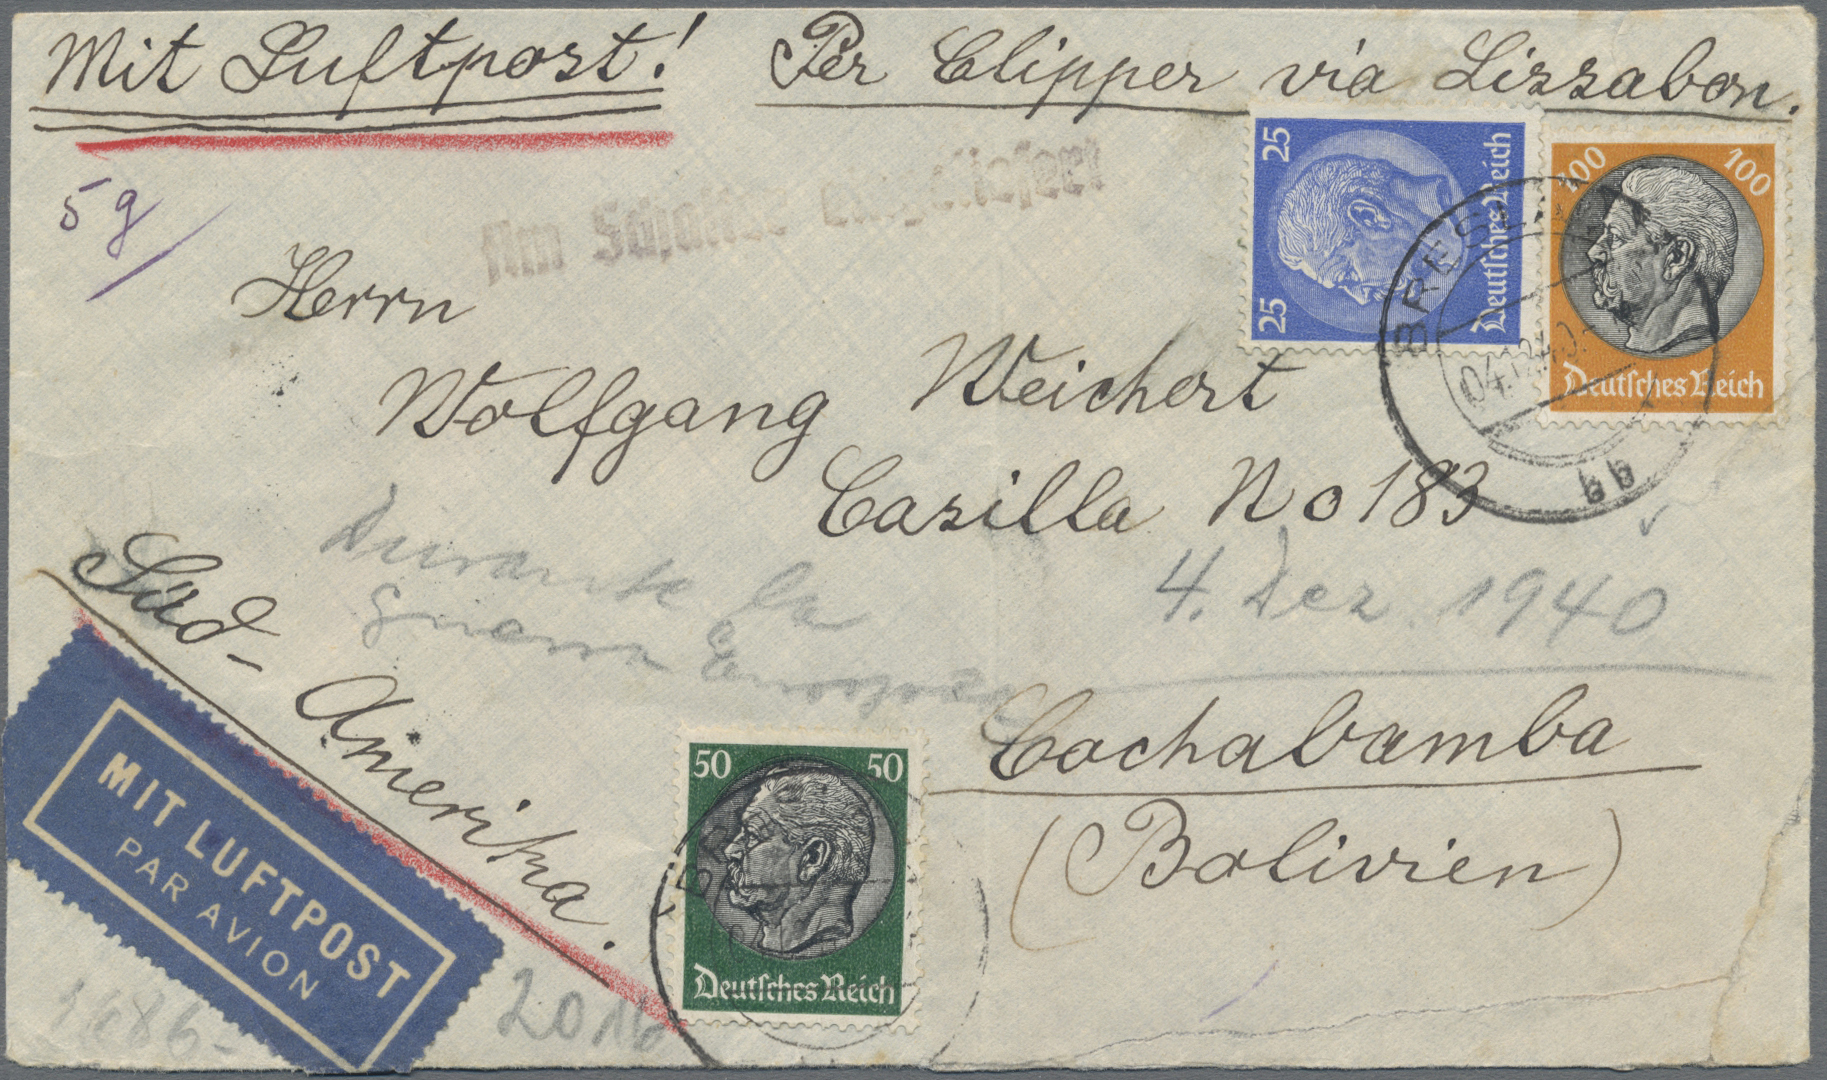 Mit Luftpost! Per Clipper via Lissabon.
5g
Am Schalter eingeliefert
25 25
Deutsches Reich
100 100
Deutsches Reich
BRESLAU
04.12.40.
bb
Herrn
Wolfgang Weichert
Casilla No 183
Durante la
guerra Europea
4. Dez. 1940
Süd-Amerika.
Cochabamba
(Bolivien)
50 50
Deutsches Reich
BRE
MIT LUFTPOST
PAR AVION
1686-